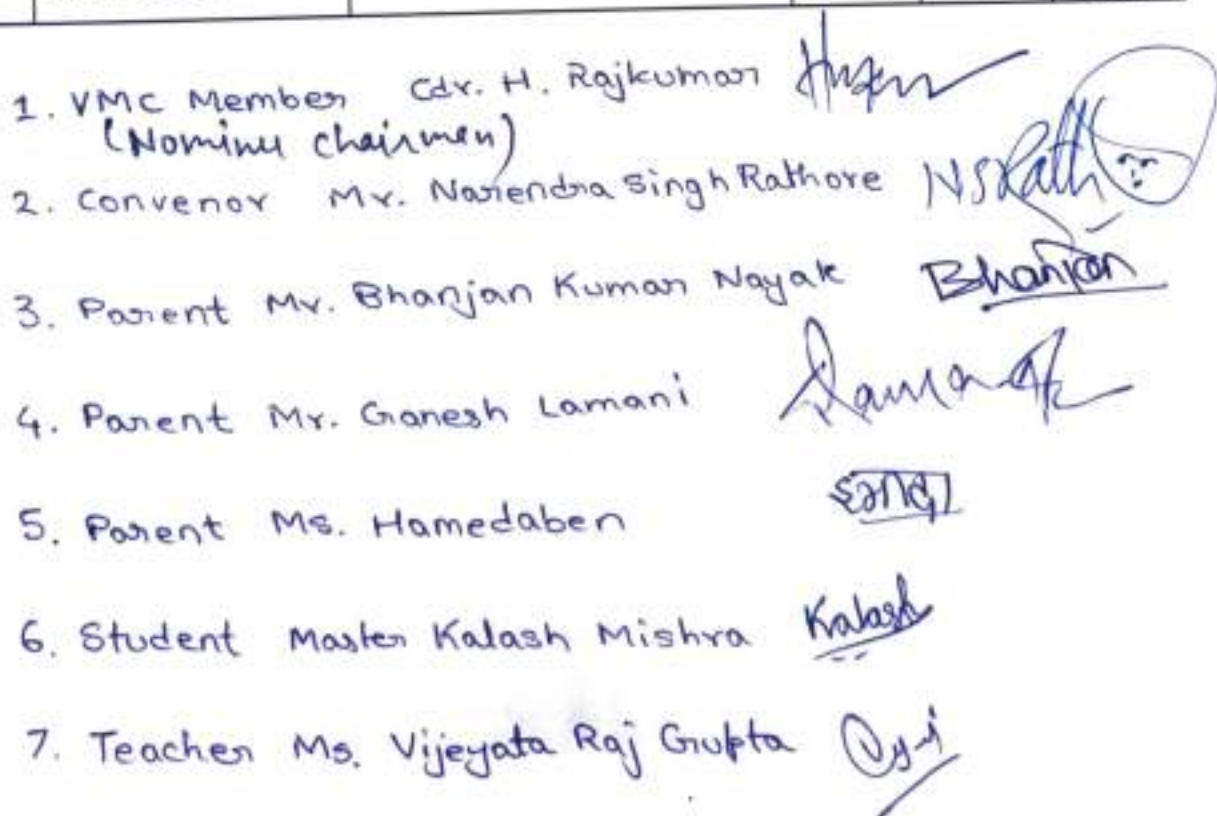 1. VMC Member Cdr. H. Rajkumar
(Nominee Chairmen)
2. Convenor Mr. Narendra Singh Rathore NSRath
3. Parent Mr. Bhanjan Kumar Nayak Bhanjan
4. Parent Mr. Ganesh Lamani
5. Parent Ms. Hamedaben
6. Student Master Kalash Mishra Kalash
7. Teacher Ms. Vijeyata Raj Gupta